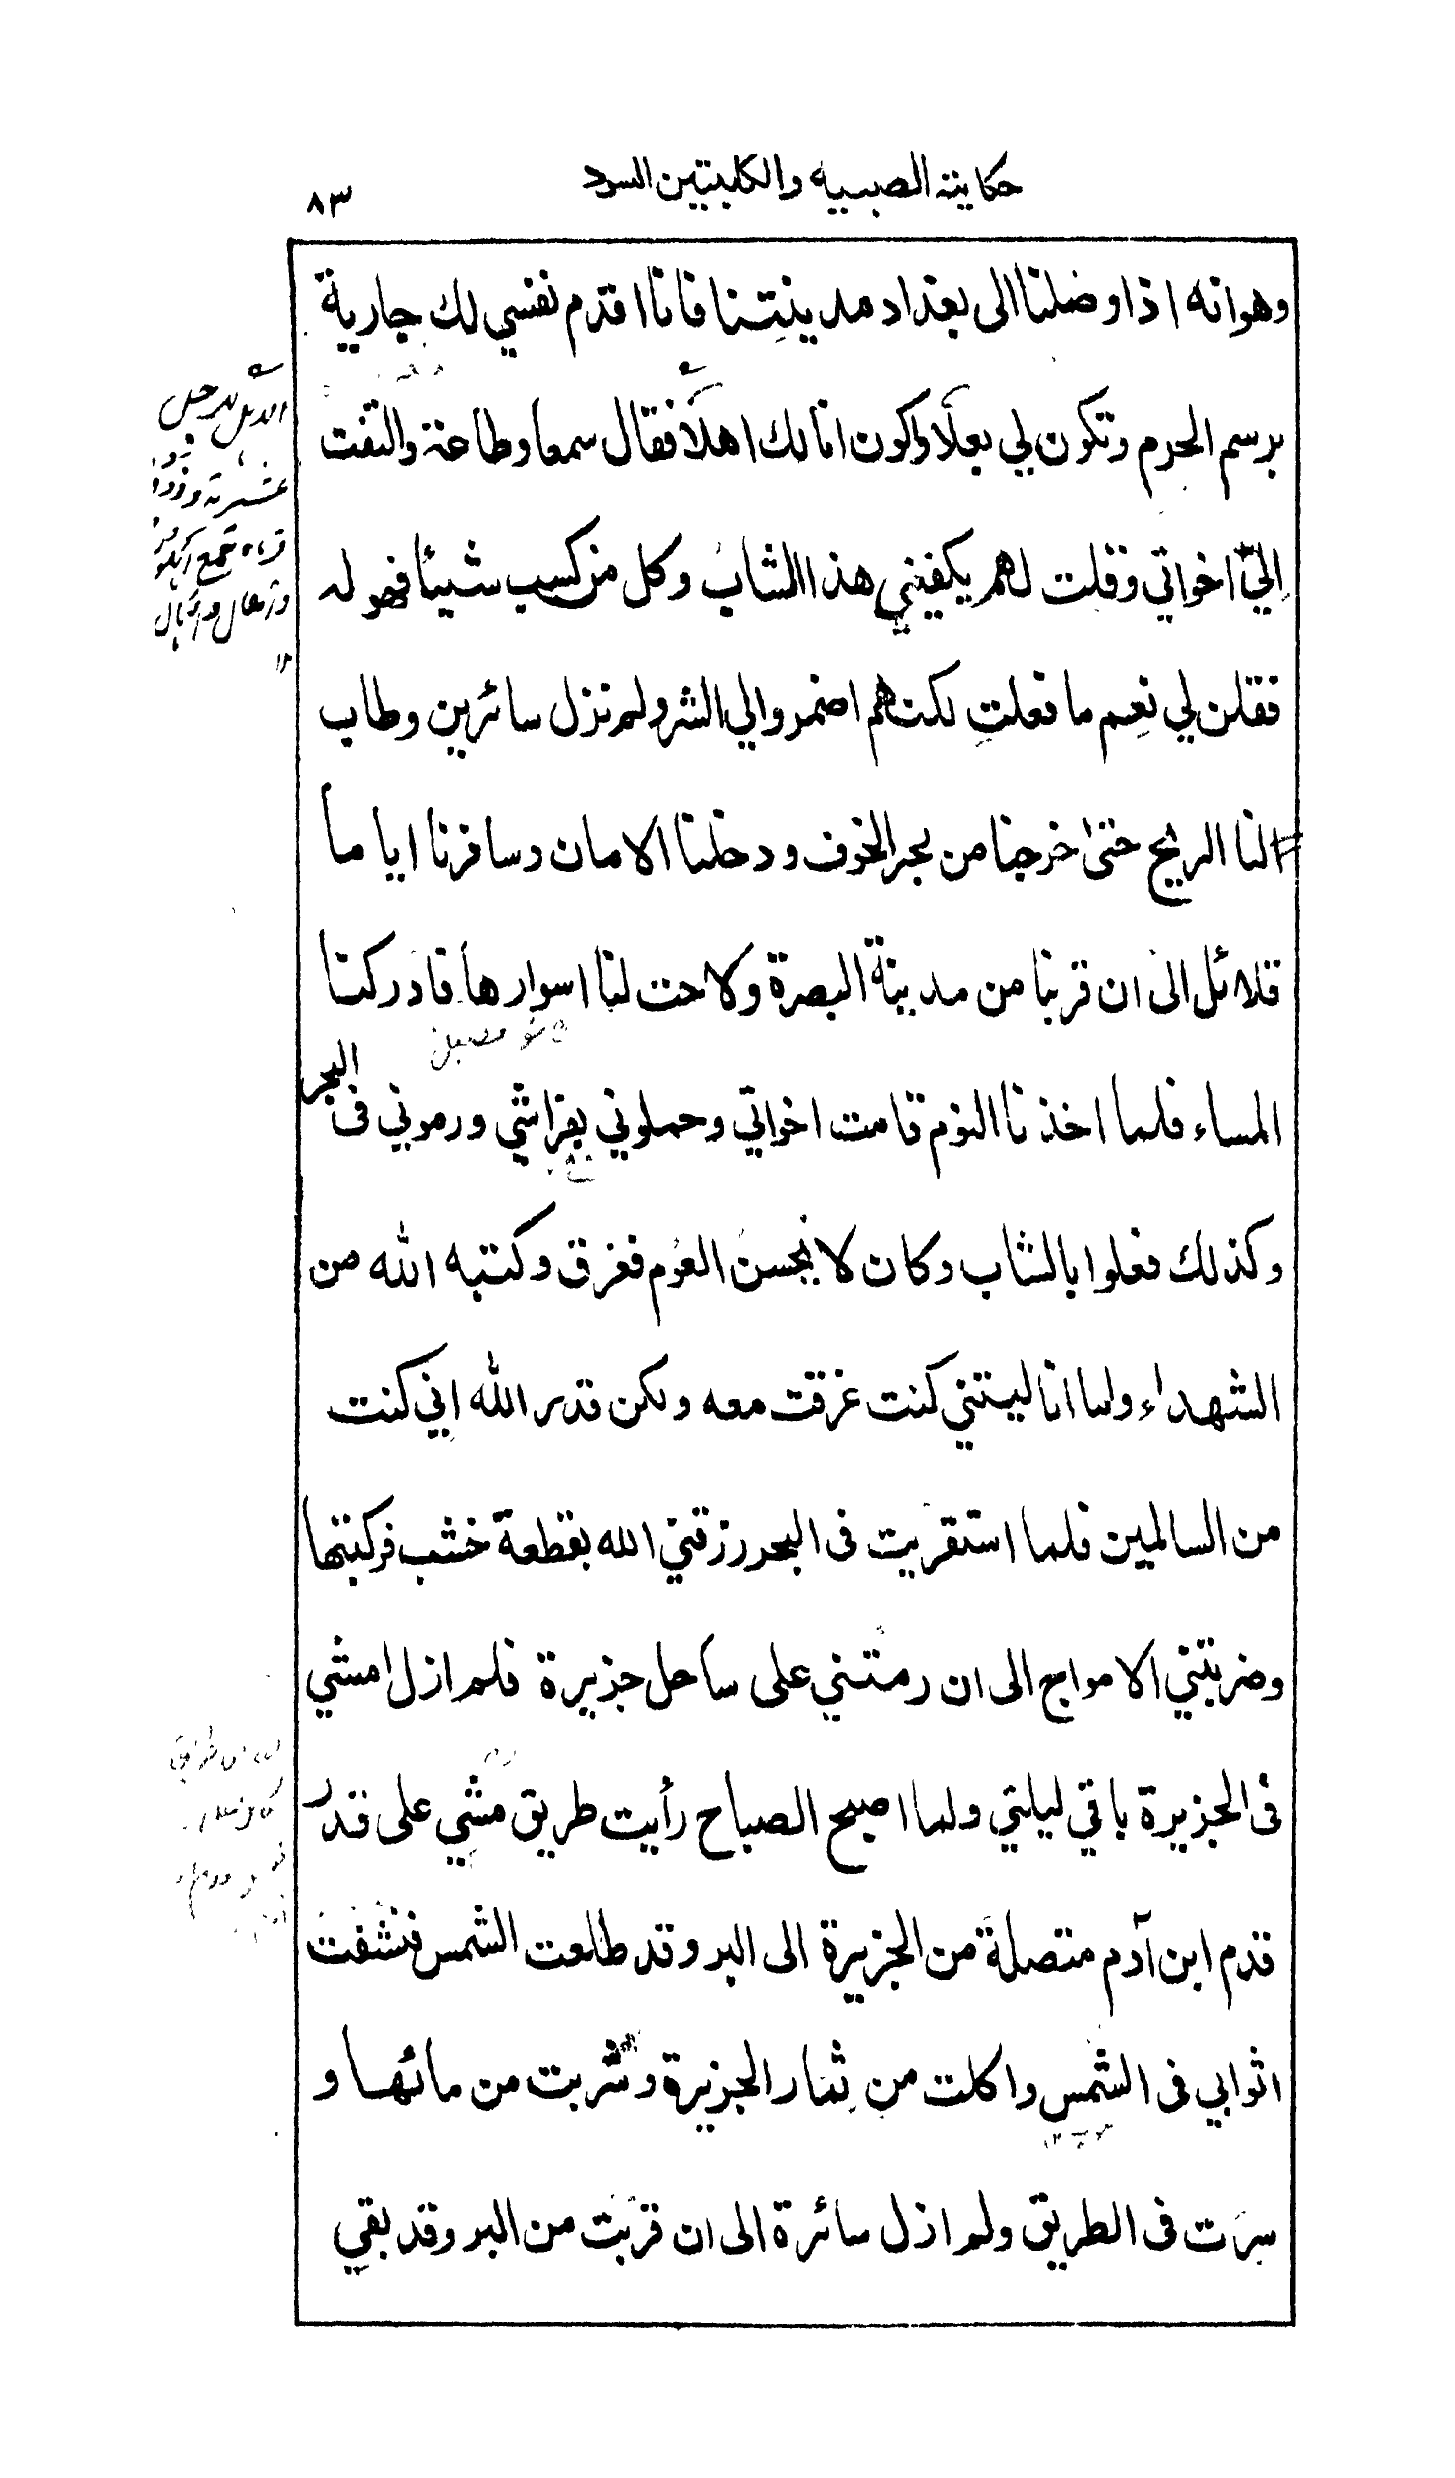 حكايته الصبيه والكلبتين السود
٨٣
وهو انه اذا وصلنا الى بغداد مدينتنا فانا اقدم نفسي لك جارية
برسم الحرم وتكون لي بعلًا واكون انا لك اهلًا فقال سمعا وطاعة والتفت
اليّ اخواتي وقلت لهم يكفيني هذا الشاب وكل من كسب شيئا فهو له
فقلن لي نعم ما فعلتِ لكنهم اضمروا لي الشر ولم نزل سائرين وطاب
لنا الريح حتى خرجنا من بحر الخوف ودخلنا الامان وسافرنا اياما
قلائل الى ان قربنا من مدينة البصرة ولاحت لنا اسوارها فادركنا
المساء فلما اخذنا النوم قامت اخواتي وحملوني بفراشي ورموني فى البحر
وكذلك فعلوا بالشاب وكان لا يحسن العوم فغرق وكتبه الله من
الشهداء ولما انا ليتني كنت غرقت معه ولكن قدر الله اني كنت
من السالمين فلما استقريت فى البحر رزقني الله بقطعة خشب فركبتها
وضربتني الامواج الى ان رمتني على ساحل جزيرة فلم ازل امشي
فى الجزيرة باقي ليلتي ولما اصبح الصباح رأيت طريق مشي على قدر
قدم ابن آدم متصلة من الجزيرة الى البر وقد طلعت الشمس فنشفت
اثوابي فى الشمس واكلت من ثمار الجزيرة وشربت من مائها و
سرت فى الطريق ولم ازل سائرة الى ان قربت من البر وقد بقي